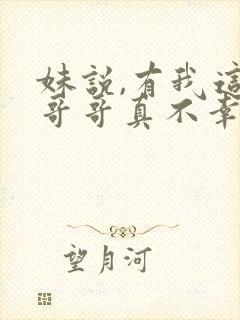 妹說,有我這
哥哥真不幸
望月河